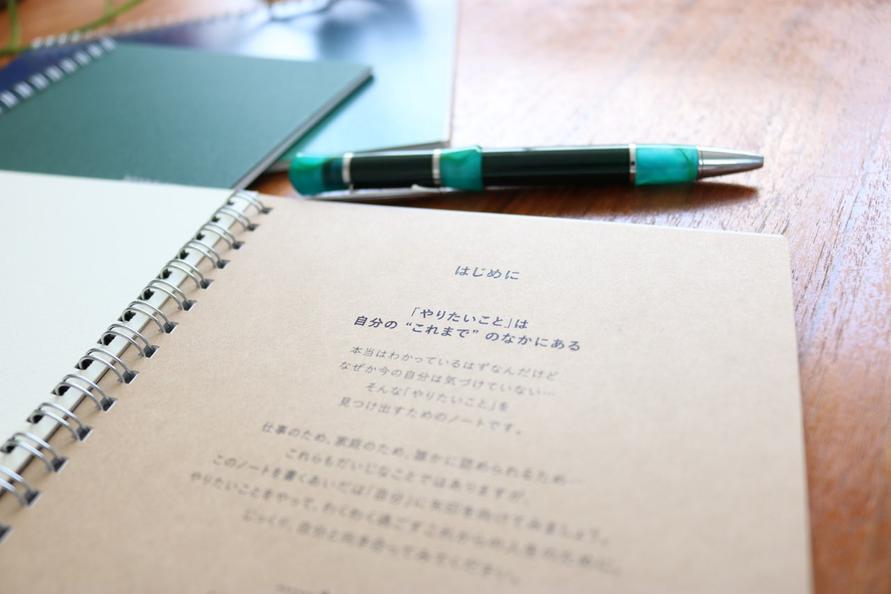 はじめに
「やりたいこと」は
自分の“これまで”のなかにある
本当はわかっているはずなんだけど
なぜか今の自分は気づけていない…
そんな「やりたいこと」を
見つけ出すためのノートです。
仕事のため、家庭のため、誰かに認められるため…
これらもだいじなことではありますが、
このノートを書くあいだは「自分」に矢印を向けてみましょう。
やりたいことをやって、わくわく過ごすこれからの人生のために、
じっくり、自分と向き合ってみてください。